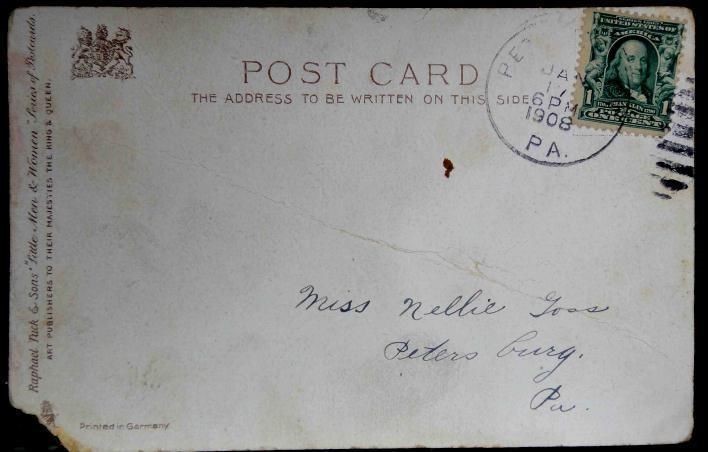 POST CARD
THE ADDRESS TO BE WRITTEN ON THIS SIDE
Raphael Tuck & Sons' "Little Men & Women" Series of Postcards.
ART PUBLISHERS TO THEIR MAJESTIES THE KING & QUEEN.
PE
JAN
17
6 PM
1908
PA.
UNITED STATES OF
AMERICA
1 FRANKLIN 1
POSTAGE
ONE CENT
Miss Nellie Goss
Petersburg.
Pa.
Printed in Germany